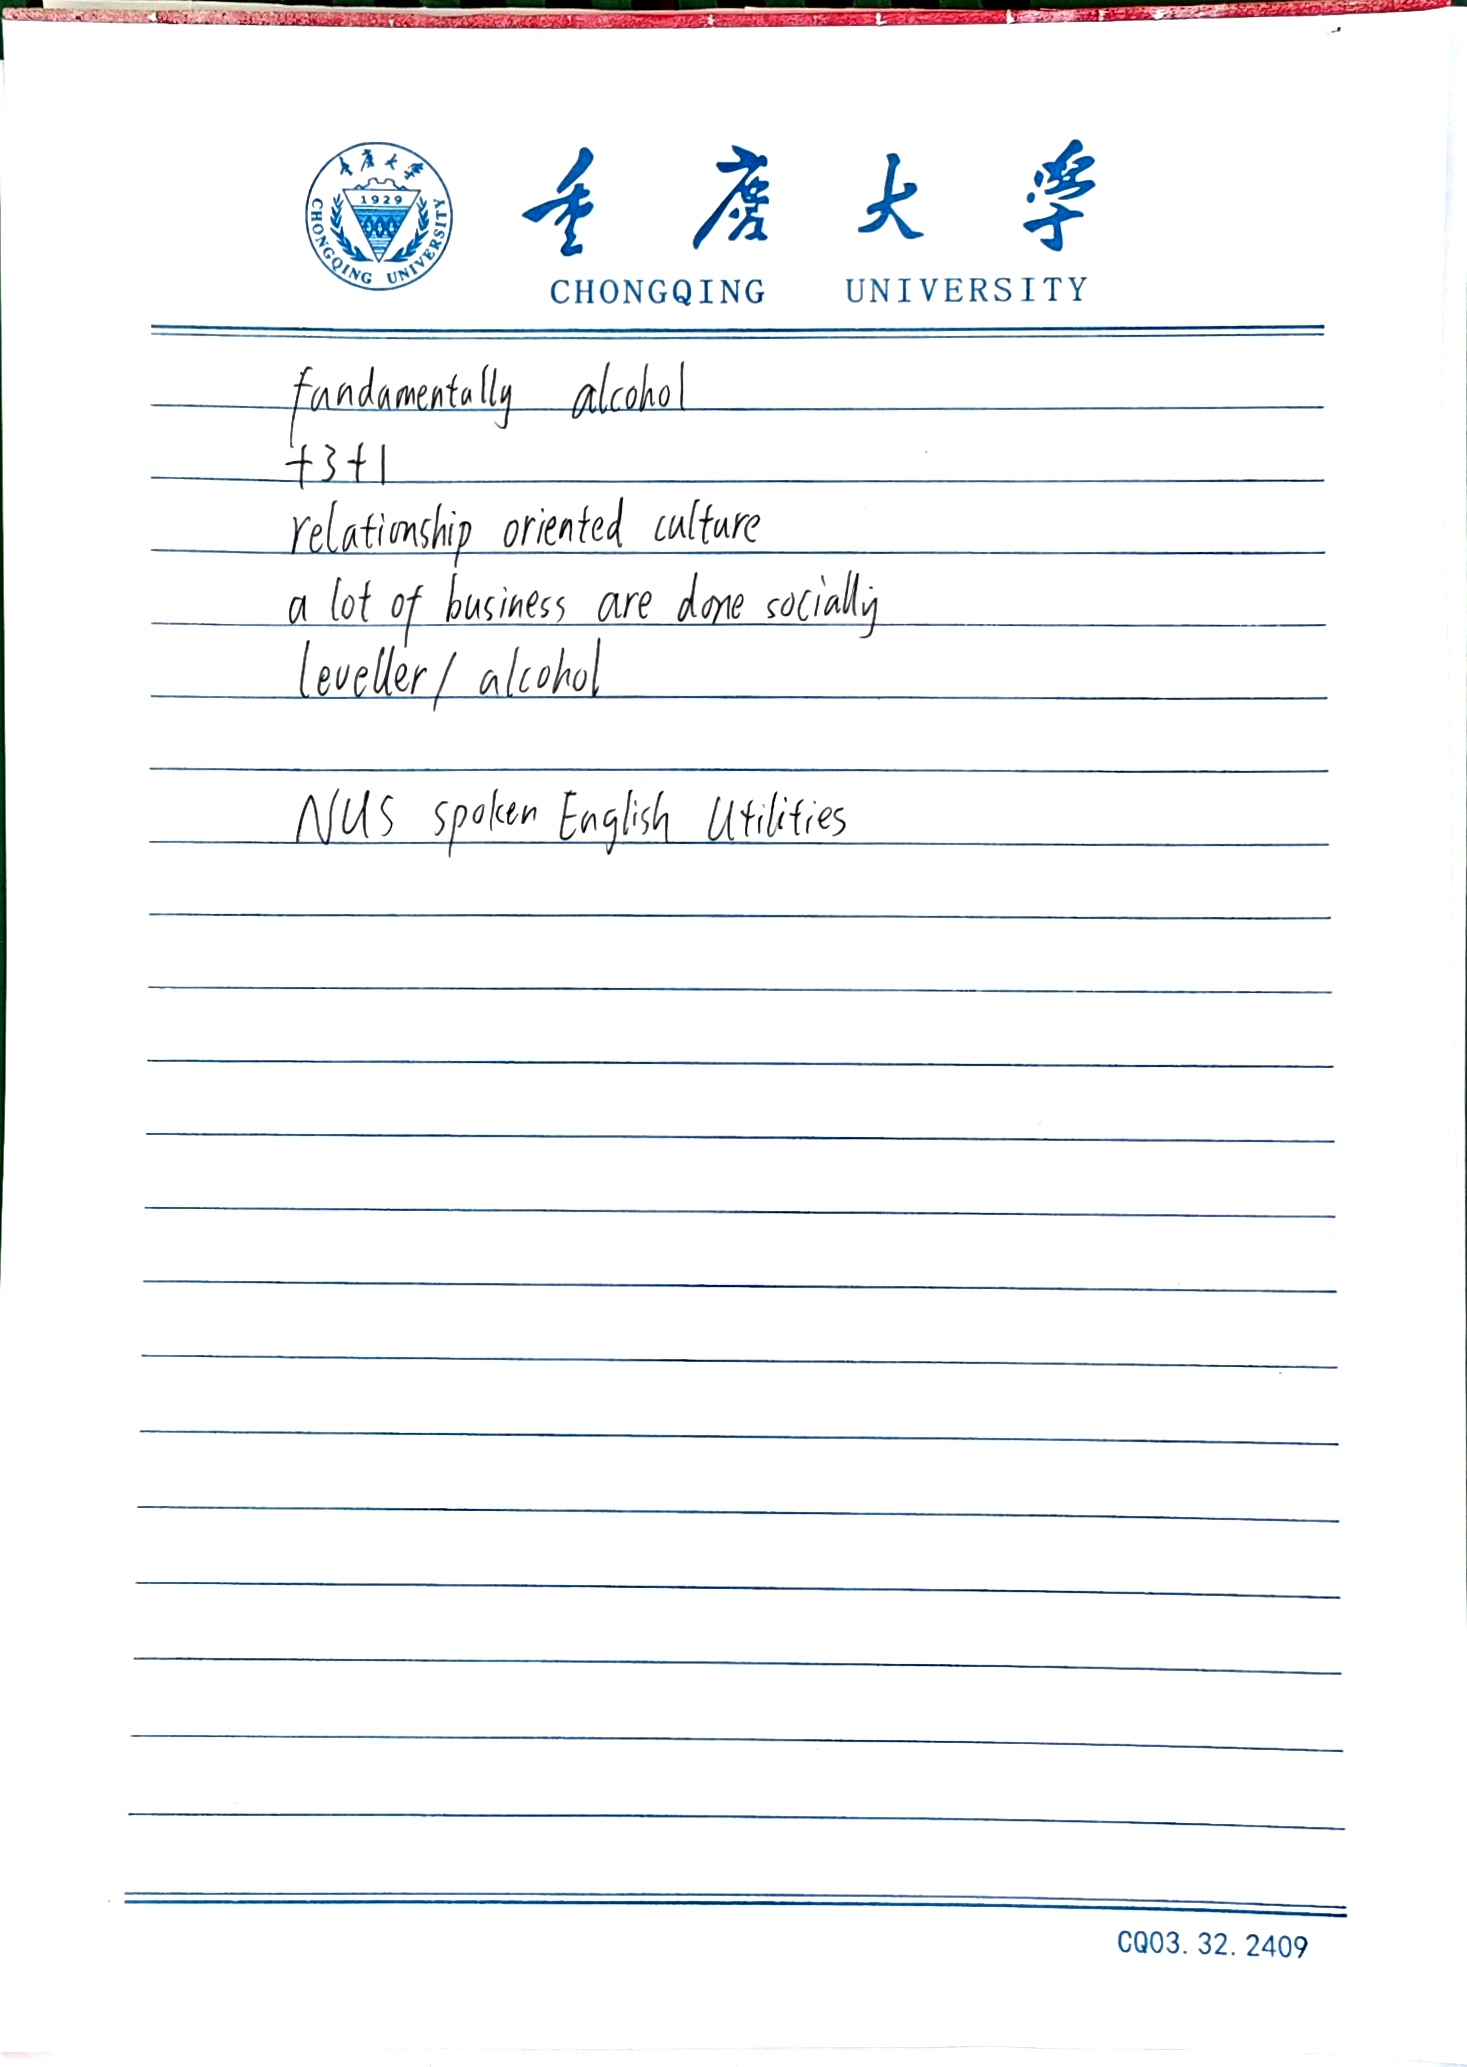 重庆大学
1929
CHONGQING UNIVERSITY
重庆大学
CHONGQING UNIVERSITY
fundamentally alcohol
+3+1
relationship oriented culture
a lot of business are done socially
leveller/ alcohol
NUS spoken English Utilities
CQ03.32.2409